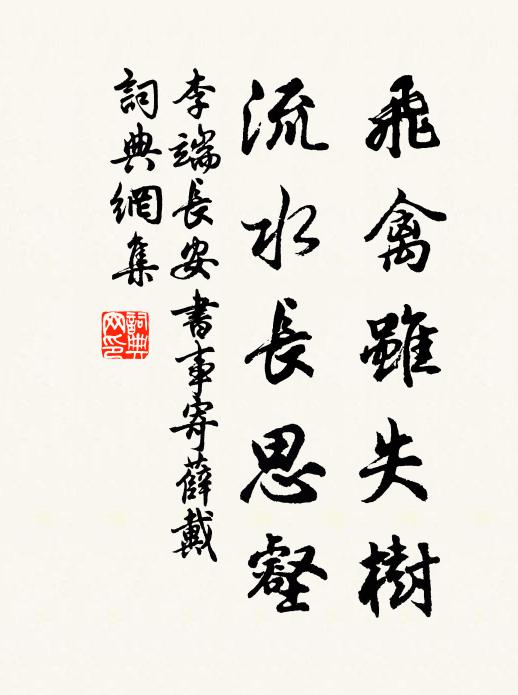 飛禽雖失樹
流水長思壑
李端長安書事寄薛戴
詞典網集
詞典網印